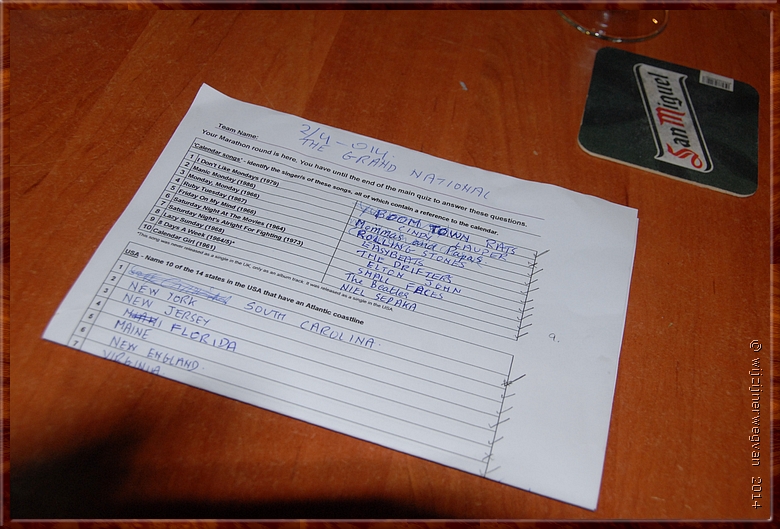 Team Name:
2/4 - 014.
THE GRAND NATIONAL
Your Marathon round is here. You have until the end of the main quiz to answer these questions.
'Calendar songs' - identify the singer/s of these songs, all of which contain a reference to the calendar.
1 I Don't Like Mondays (1979) BOOM TOWN RATS
2 Manic Monday (1986) CINDY LAUPER
3 Monday, Monday (1966) Mommas and Papas
4 Ruby Tuesday (1967) ROLLING STONES
5 Friday On My Mind (1966) EASYBEATS
6 Saturday Night At The Movies (1964) THE DRIFTERS
7 Saturday Night's Alright For Fighting (1973) ELTON JOHN
8 Lazy Sunday (1968) SMALL FACES
9 8 Days A Week (1964/5)* The Beatles
10 Calendar Girl (1961) NIEL SEDAKA
*This song was never released as a single in the UK, only as an album track. It was released as a single in the USA.
9.
USA - Name 10 of the 14 states in the USA that have an Atlantic coastline
1 SOUTH CAROLINA.
2 NEW YORK
3 NEW JERSEY
4 FLORIDA
5 MAINE
6 NEW ENGLAND.
7 VIRGINIA
San Miguel
© wijzijnerwegvan 2014